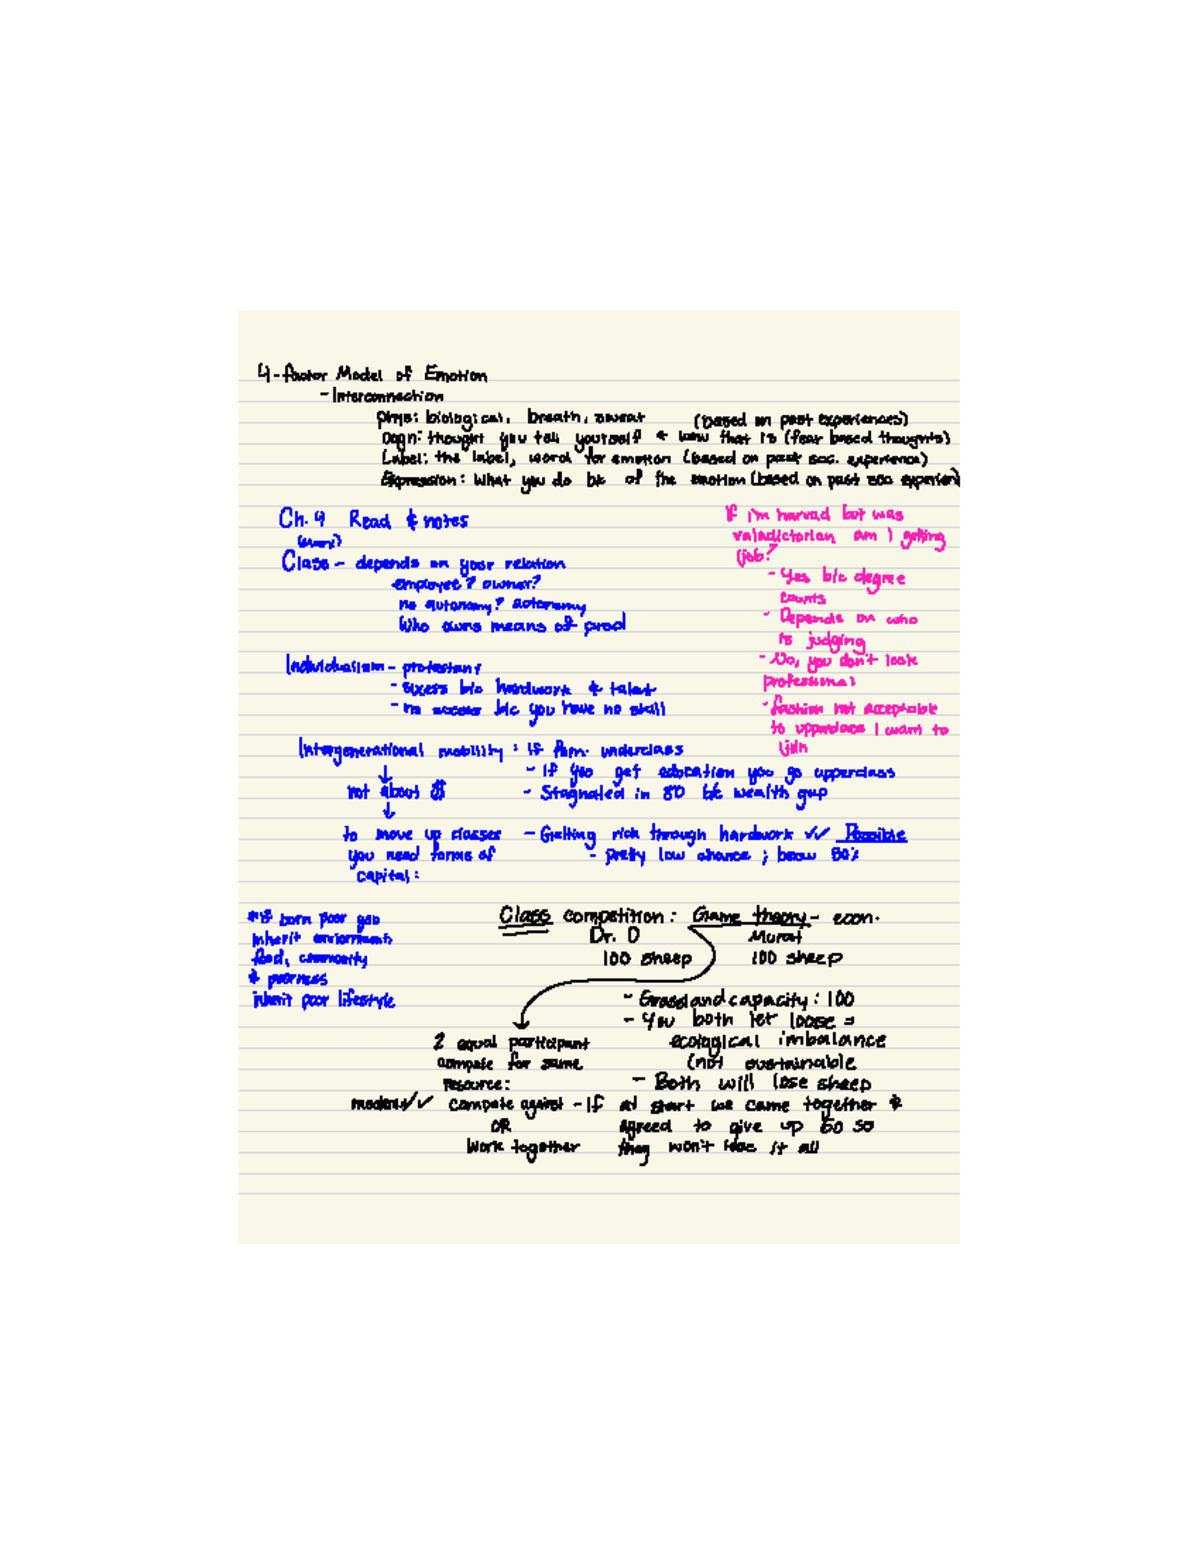 4-factor Model of Emotion
- Interconnection
phys: biological, breath, sweat (based on past experiences)
Cogn: thought you tell yourself & how that is (fear based thoughts)
Label: the label, word for emotion (based on past soc. experience)
Expression: What you do b/c of the emotion (based on past soc experien
Ch. 9 Read & notes
(marx)
Class - depends on your relation
employee? owner?
no autonomy? autonomy
Who owns means of prod
Individualism - protestant
- success b/c hardwork & talent
- no success b/c you have no skill
Intergenerational mobility: If fam. underclass
- If you get education you go upperclass
- Stagnated in 80 b/c wealth gap
not about $$
to move up classes
you need forms of
capital:
- Getting rich through hardwork ✓✓ Possible
- pretty low chance ; below 50%
If i'm harvad but was
valadictorian am I getting
job?
- Yes b/c degree
counts
- Depends on who
is judging
- No, you don't look
professional
- fashion not acceptable
to upperclass I want to
join
born poor
inherit enviorment,
food, community
&
inherit poor lifestyle
Class competition: Game theory - econ.
Dr. D Murat
100 sheep 100 sheep
- Grassland capacity: 100
- You both let loose =
ecological imbalance
(not sustainable
- Both will lose sheep
- If at start we came together &
agreed to give up 50 so
they won't lose it all
2 equal participant
compete for same
resource:
✓✓ Compete against
OR
Work together